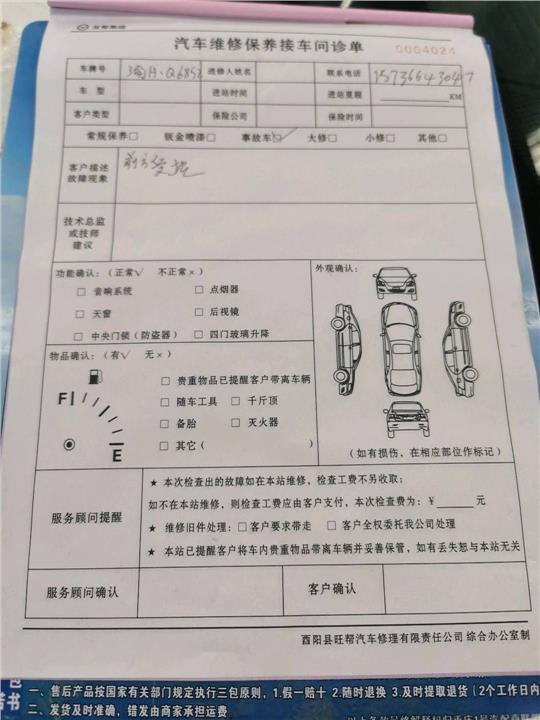 汽车维修保养接车问诊单
0004024
车牌号 送修人姓名 联系电话 15736643047
车 型 送站时间 进站里程 KM
客户类型 保险公司 保险时间
常规保养□ 钣金喷漆□ 事故车□ 大修□ 小修□ 其他□
客户描述
故障现象
技术总监
或技师
建议
功能确认：（正常√ 不正常×）
□ 音响系统 □ 点烟器
□ 天窗 □ 后视镜
□ 中央门锁（防盗器） □ 四门玻璃升降
外观确认：
物品确认：（有√ 无×）
□ 贵重物品已提醒客户带离车辆
□ 随车工具 □ 千斤顶
□ 备胎 □ 灭火器
□ 其它（ ）
F
E
（如有损伤，在相应部位作标记）
服务顾问提醒
★ 本次检查出的故障如在本站维修，检查工费不另收取；
如不在本站维修，则检查工费应由客户支付，本次检查费为：￥ 元
★ 维修旧件处理：□客户要求带走 □ 客户全权委托我公司处理
★ 本站已提醒客户将车内贵重物品带离车辆并妥善保管，如有丢失恕与本站无关
服务顾问确认 客户确认
酉阳县旺帮汽车修理有限责任公司 综合办公室制
一、售后产品按国家有关部门规定执行三包原则，1.假一赔十 2.随时退换 3.及时提取退货（2个工作日内
二、发货及时准确，错发由商家承担运费